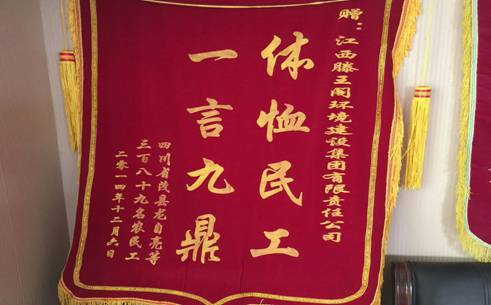 赠：江西滕王阁环境建设集团有限责任公司
体恤民工
一言九鼎
四川省茂县龙自亮等
三百八十九名农民工
二零一四年十二月六日